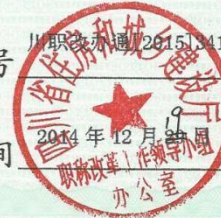 号 川职改办通[2015]341
四川省住房和城乡建设厅
间 2014 年 12 月 19 日
职称改革工作领导小组
办公室